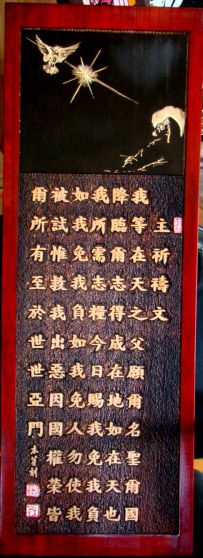 主祈禱文
我等在天之父願爾名聖爾國
降臨爾志得成在地如在天也
我所需之糧今日賜我免我負
如我免我負如我免人勿使我
被試惟救我出惡因國權榮皆
爾所有至於世世亞門